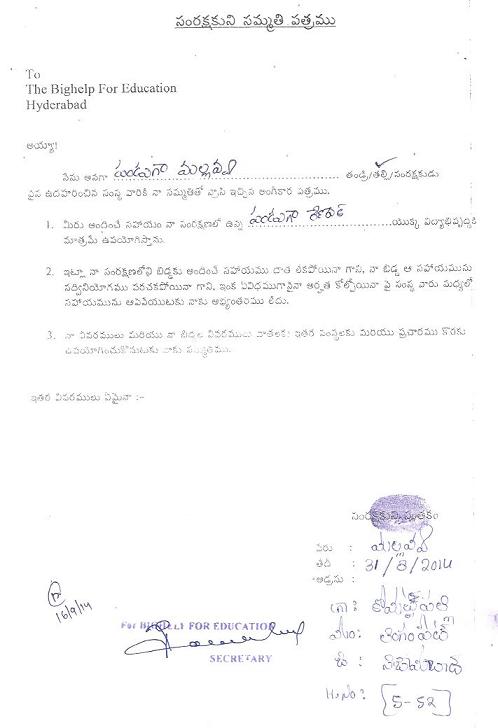 సంరక్షకుని సమ్మతి పత్రము
To
The Bighelp For Education
Hyderabad
అయ్యా!
నేను అనగా మల్లవ్వ తండ్రి/తల్లి/సంరక్షకుడు
పైన ఉదహరించిన సంస్థ వారికి నా సమ్మతితో వ్రాసి ఇచ్చిన అంగీకార పత్రము.
1. మీరు అందించే సహాయం నా సంరక్షణలో ఉన్న యొక్క విద్యాభివృద్ధికి
మాత్రమే ఉపయోగిస్తాను.
2. ఇట్లా నా సంరక్షణలోని బిడ్డకు అందించే సహాయము దాత లేకపోయినా గాని, నా బిడ్డ ఆ సహాయమును
సద్వినియోగము పరచకపోయినా గాని, ఇంక ఏవిధముగానైనా అర్హత కోల్పోయినా పై సంస్థ వారు మధ్యలో
సహాయమును ఆపివేయుటకు నాకు అభ్యంతరము లేదు.
3. నా వివరములు మరియు నా బిడ్డ వివరములు దాతలకు, ఇతర సంస్థలకు మరియు ప్రచారము కొరకు
ఉపయోగించుకొనుటకు నాకు సమ్మతము.
ఇతర వివరములు ఏమైనా :-
సంరక్షకుని సంతకం
పేరు : మల్లవ్వ
తేది : 31/8/2014
అడ్రసు :
గ్రా:
మం:
జి: నిజామాబాద్
H.No: [5-52]
16/9/14
For BIGHELP FOR EDUCATION
SECRETARY